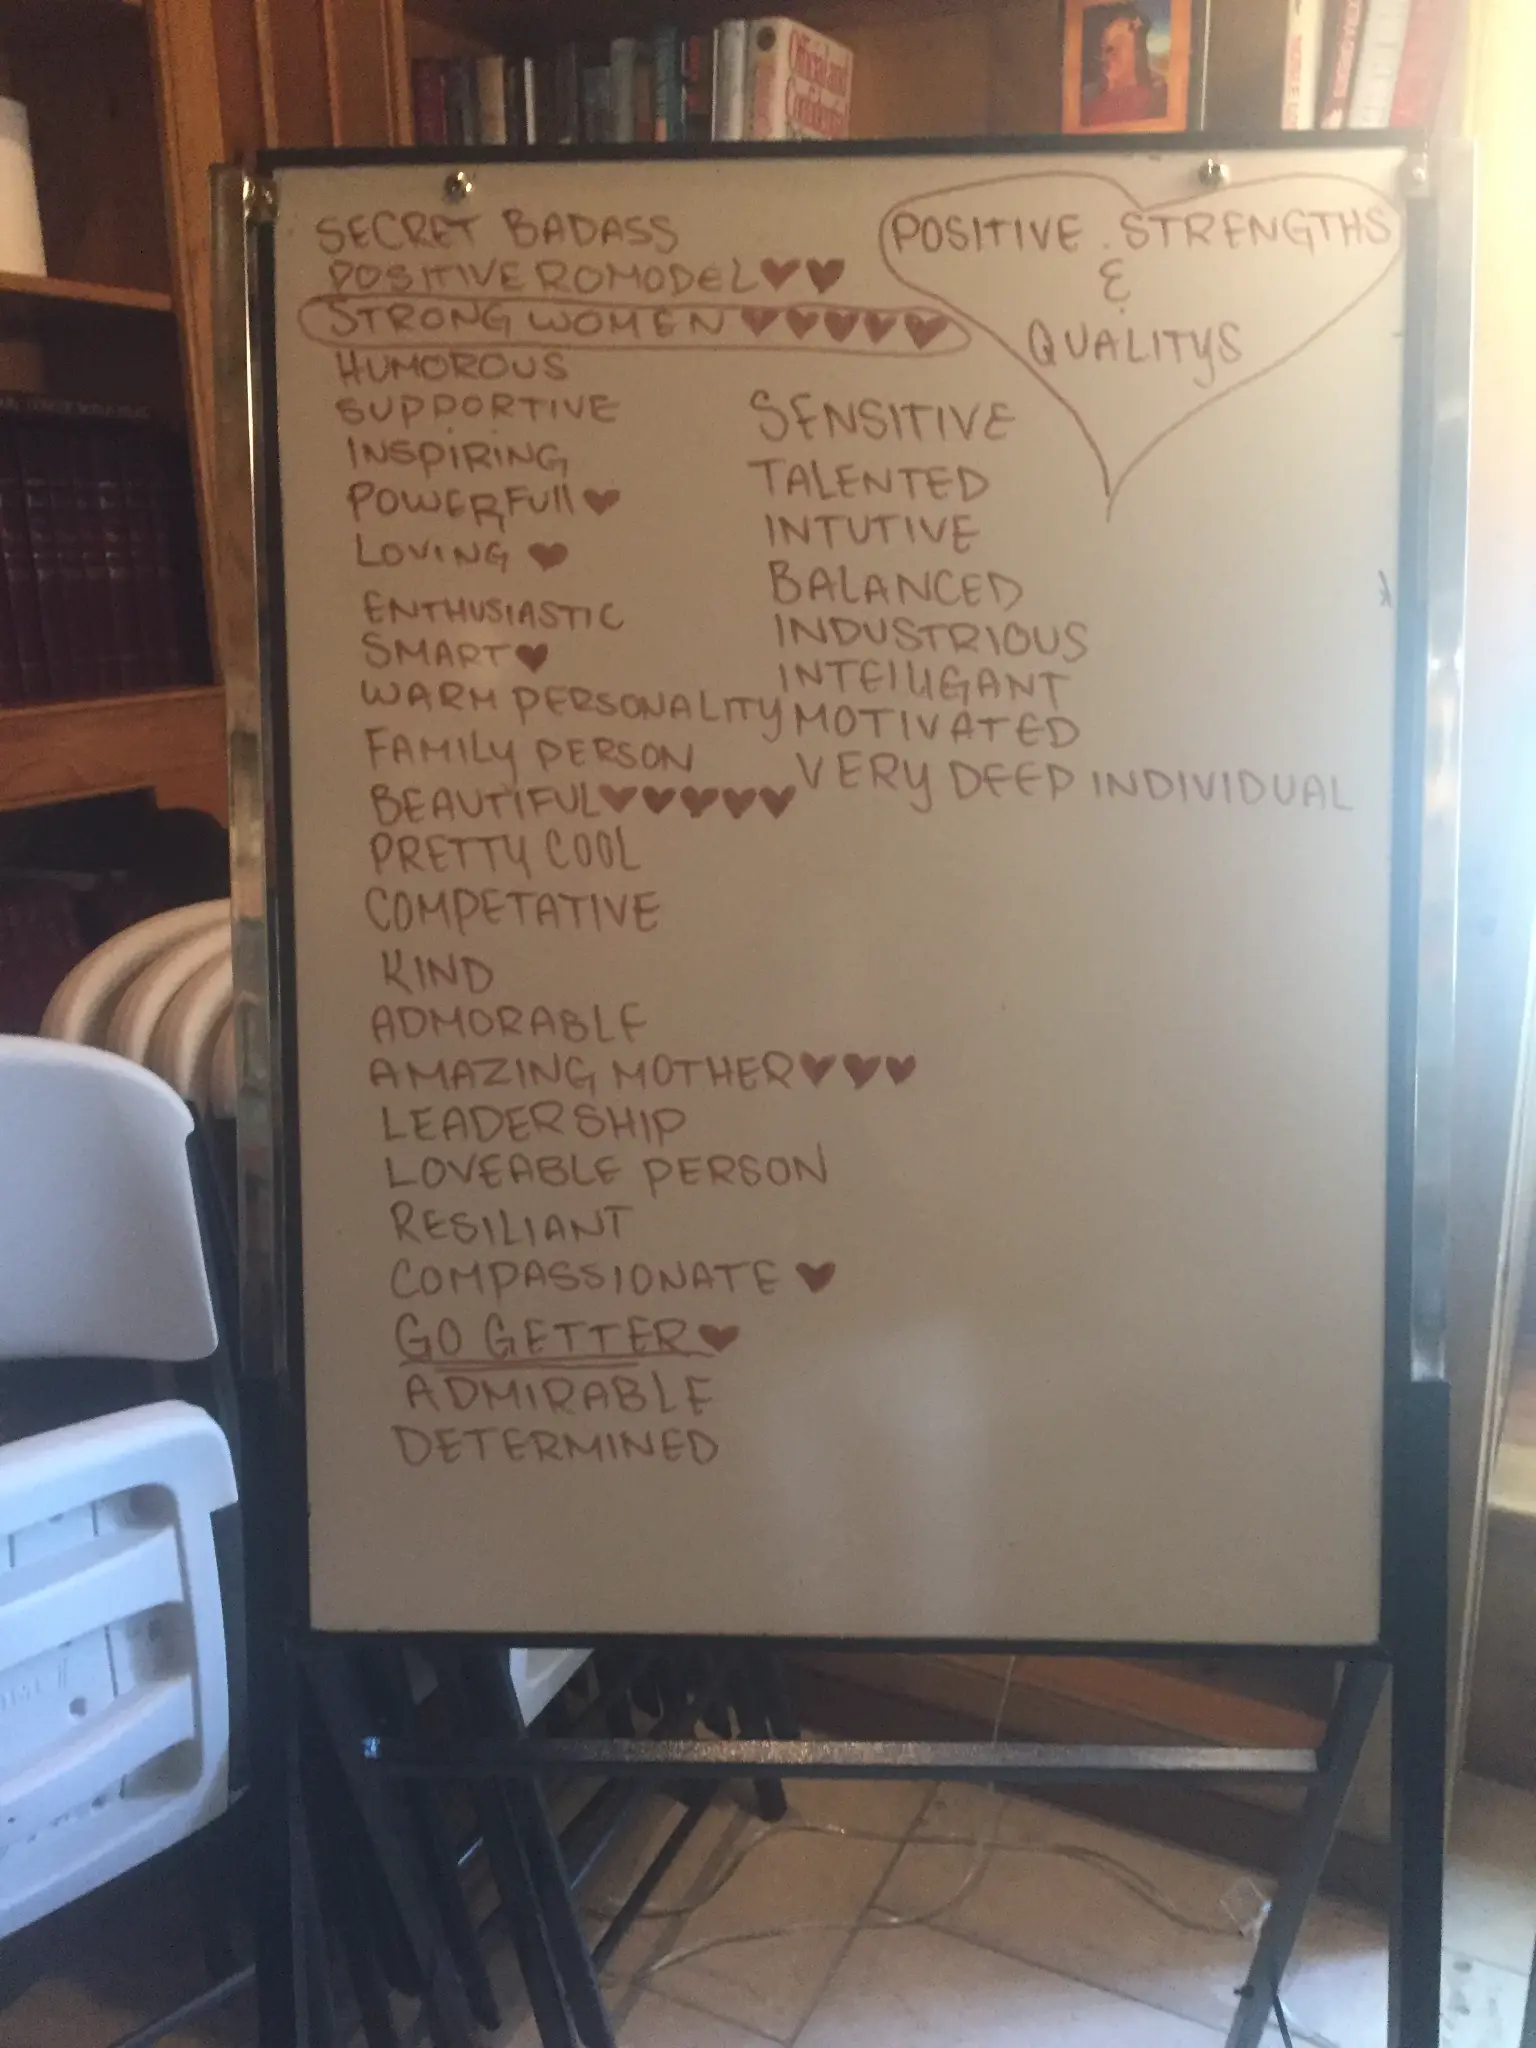 Official and
Confidential
SECRET BADASS
POSITIVE ROMODEL ♥♥
STRONG WOMEN ♥♥♥♥♥
HUMOROUS
SUPPORTIVE
INSPIRING
POWERFUll ♥
LOVING ♥
ENTHUSIASTIC
SMART ♥
WARM PERSONALITY
FAMILY PERSON
BEAUTIFUL ♥♥♥♥♥
PRETTY COOL
COMPETATIVE
KIND
ADMORABLE
AMAZING MOTHER ♥♥♥
LEADERSHIP
LOVEABLE PERSON
RESILIANT
COMPASSIONATE ♥
GO GETTER ♥
ADMIRABLE
DETERMINED
POSITIVE STRENGTHS
&
QUALITYS
SENSITIVE
TALENTED
INTUTIVE
BALANCED
INDUSTRIOUS
INTEllIGANT
MOTIVATED
VERY DEEP INDIVIDUAL